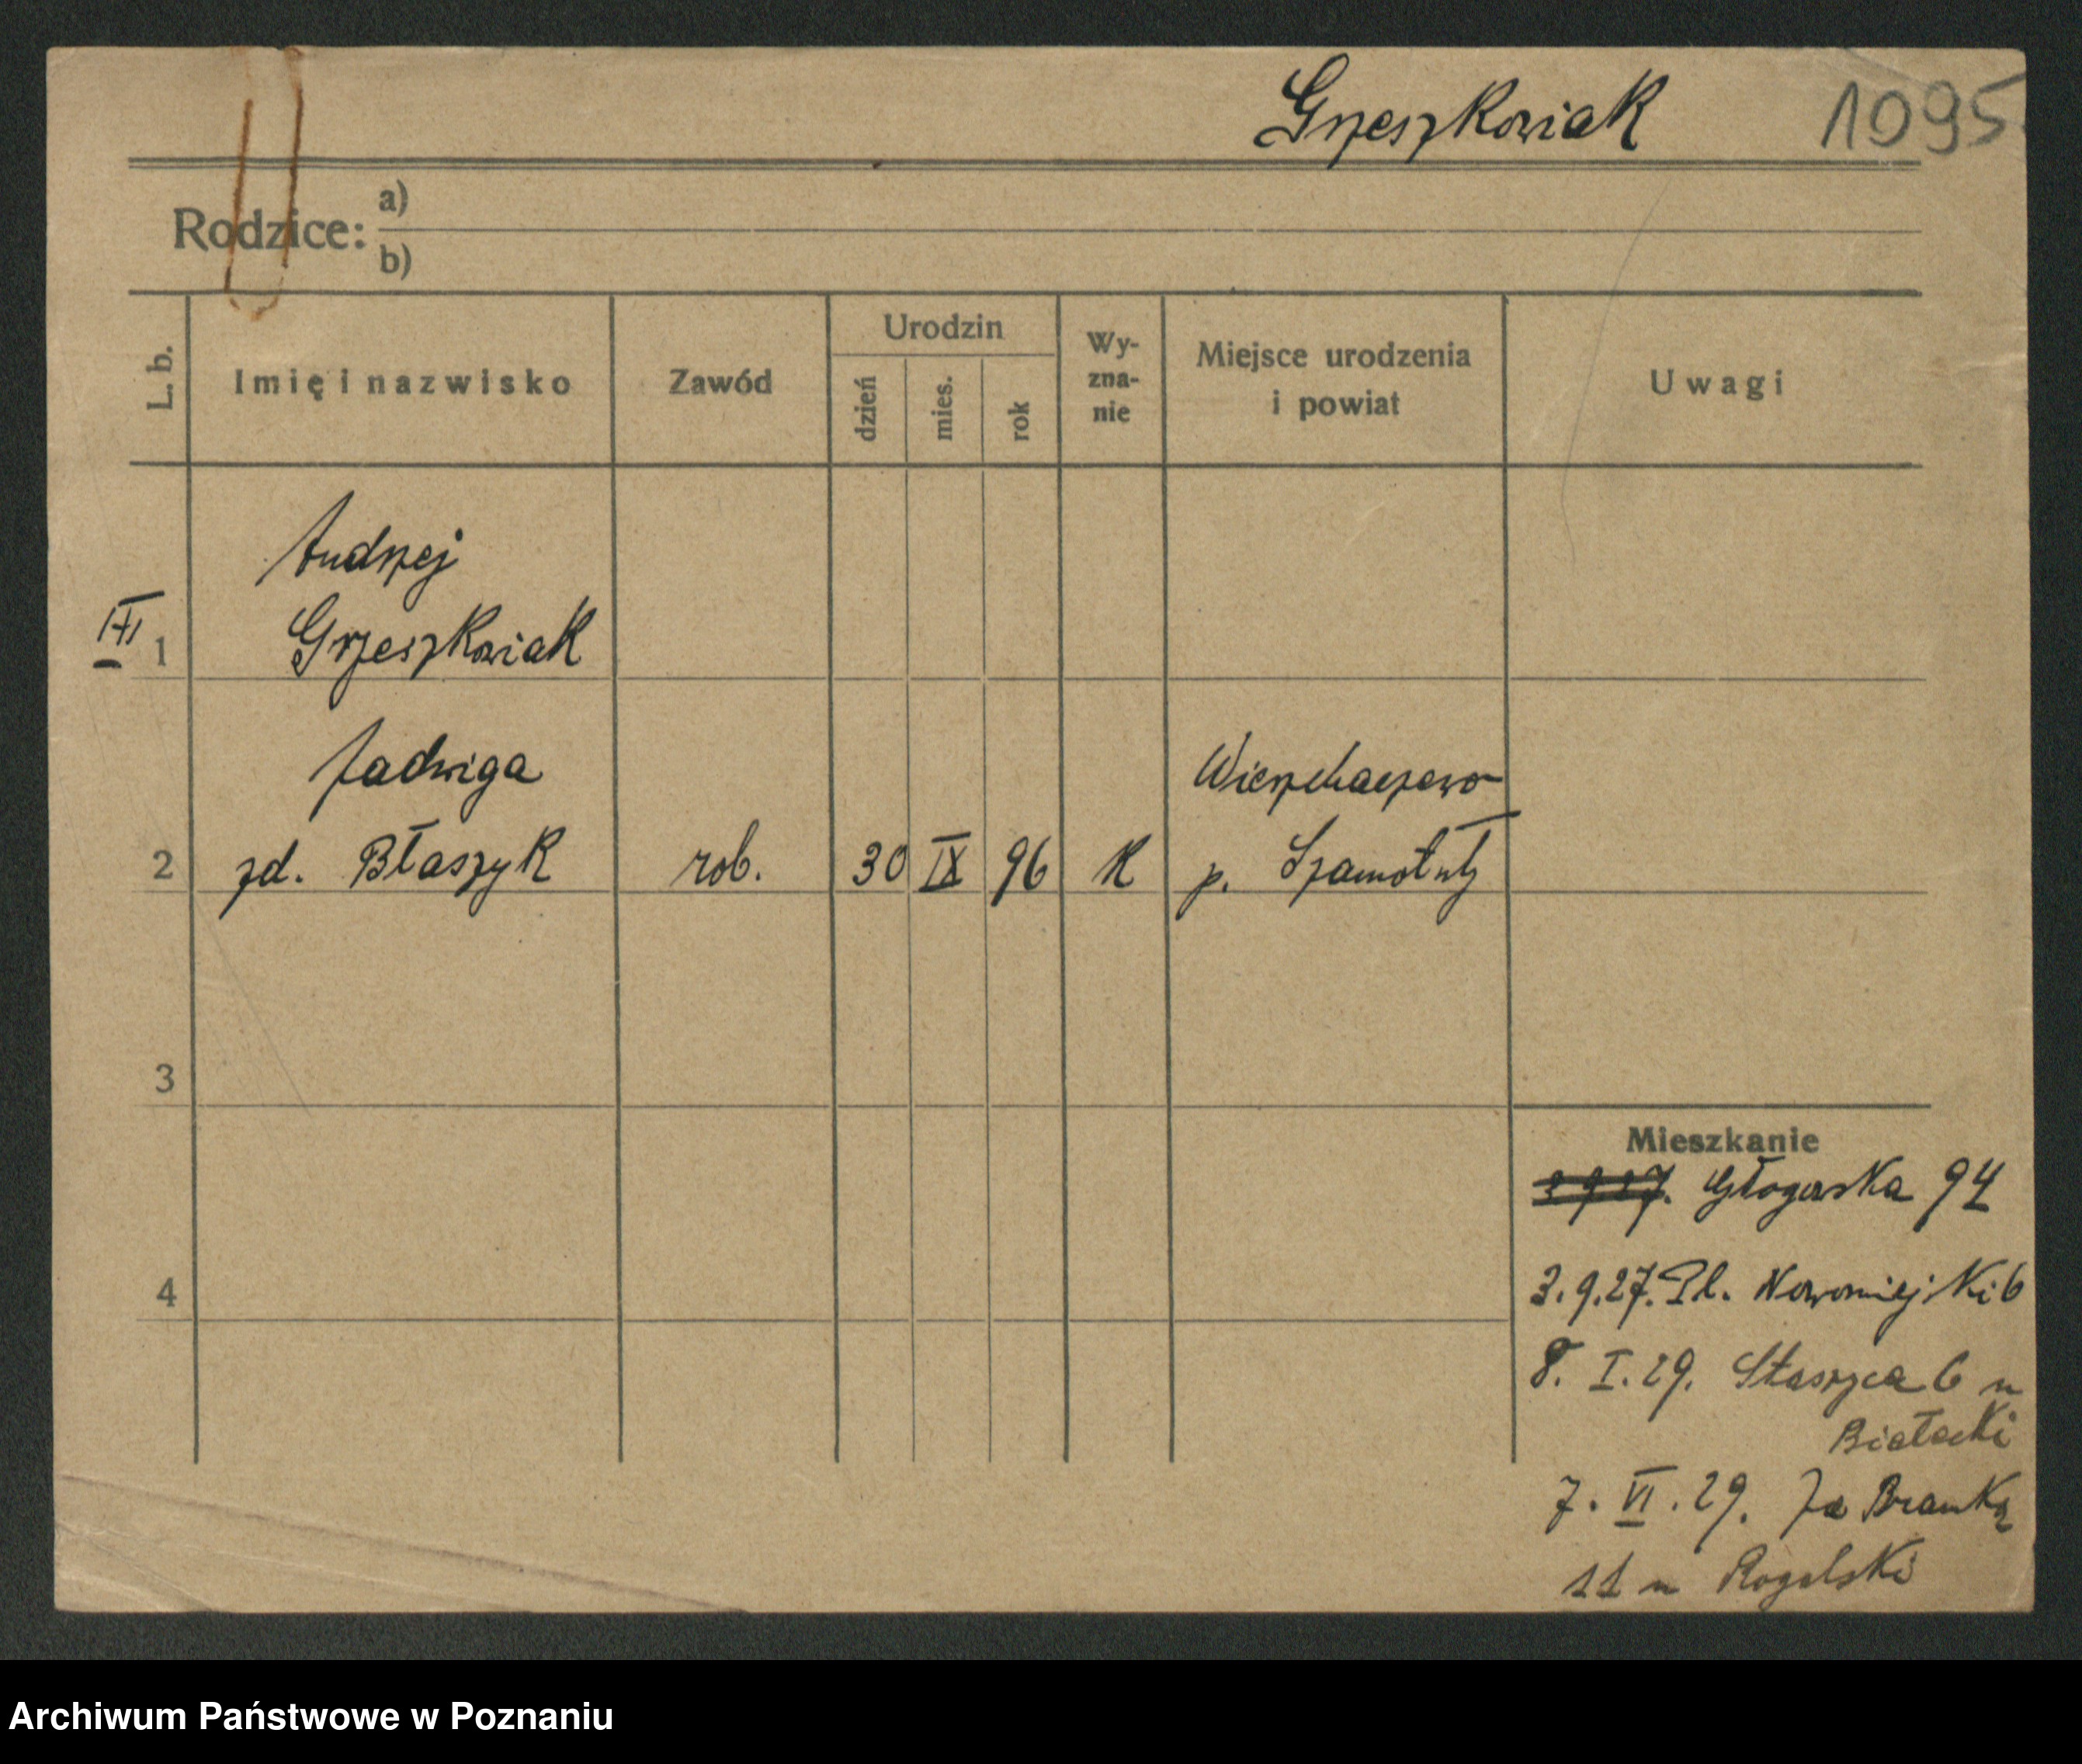 Grzeszkowiak 1095
Rodzice: a)
b)
L. b. Imię i nazwisko Zawód Urodzin dzień mies. rok Wy-zna-nie Miejsce urodzenia i powiat Uwagi
Andrzej
III 1 Grzeszkowiak
Jadwiga Wierzchaczewo
2 zd. Błaszyk rob. 30 IX 96 K p. Szamotuły
3
Mieszkanie
Głogowska 94
4 3.9.27. Pl. Nowomiejski 6
8. I. 29. Staszyca 6 u
Białecki
7. VI. 29. Za Bramką
11 u Rogalski
Archiwum Państwowe w Poznaniu